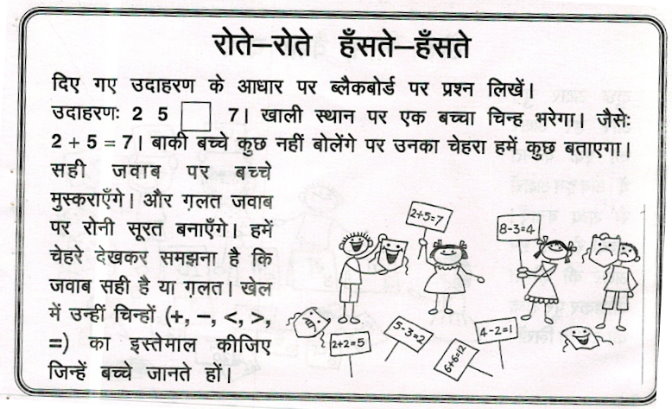 रोते–रोते हँसते–हँसते
दिए गए उदाहरण के आधार पर ब्लैकबोर्ड पर प्रश्न लिखें।
उदाहरणः 2 5 □ 7। खाली स्थान पर एक बच्चा चिन्ह भरेगा। जैसेः
2 + 5 = 7। बाकी बच्चे कुछ नहीं बोलेंगे पर उनका चेहरा हमें कुछ बताएगा।
सही जवाब पर बच्चे
मुस्कराएँगे। और ग़लत जवाब
पर रोनी सूरत बनाएँगे। हमें
चेहरे देखकर समझना है कि
जवाब सही है या ग़लत। खेल
में उन्हीं चिन्हों (+, –, <, >,
=) का इस्तेमाल कीजिए
जिन्हें बच्चे जानते हों।
2+5=7
8-3=4
2+2=5
5-3=2
6+6=12
4-2=1